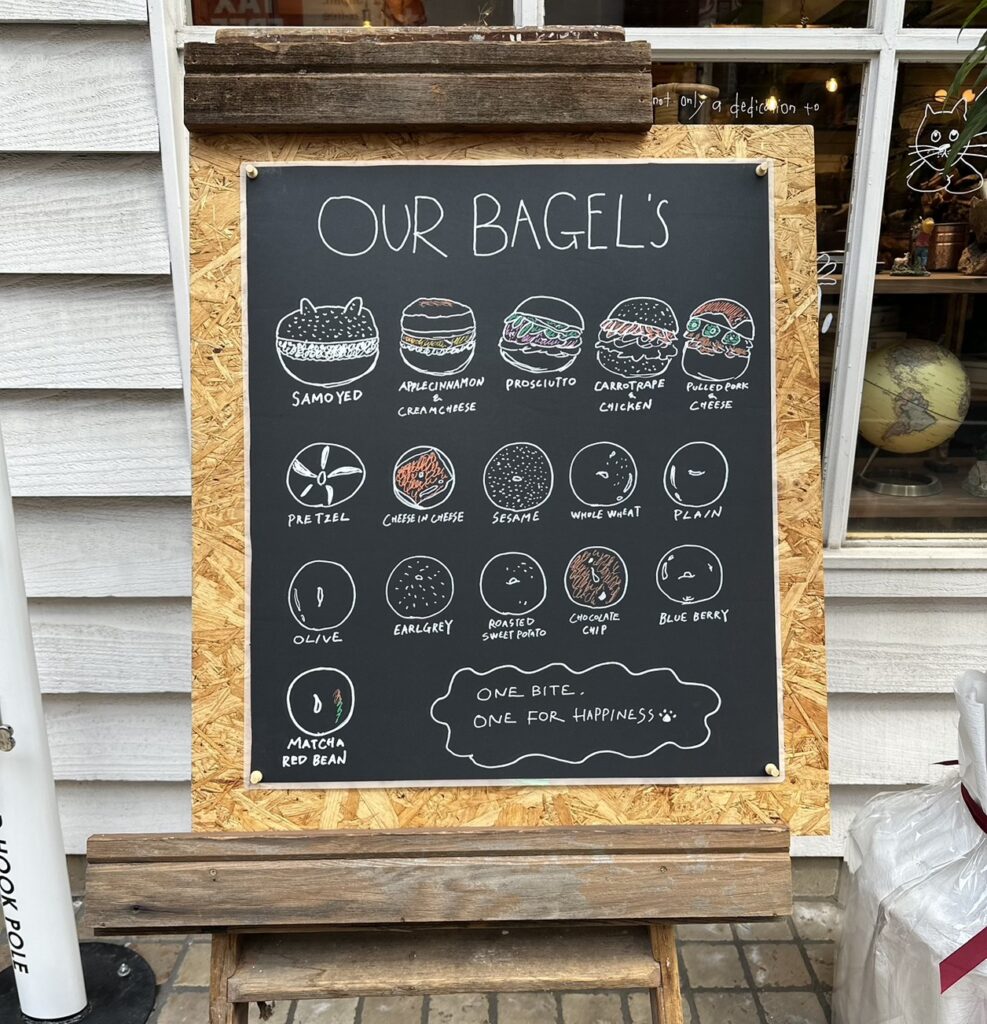 TAX
FREE
not only a dedication to
OUR BAGEL'S
SAMOYED
APPLECINNAMON
&
CREAMCHEESE
PROSCIUTTO
CARROTRAPE
&
CHICKEN
PULLEDPORK
&
CHEESE
PRETZEL
CHEESE IN CHEESE
SESAME
WHOLE WHEAT
PLAIN
OLIVE
EARLGREY
ROASTED
SWEET POTATO
CHOCOLATE
CHIP
BLUE BERRY
MATCHA
RED BEAN
ONE BITE.
ONE FOR HAPPINESS
HOOK POLE